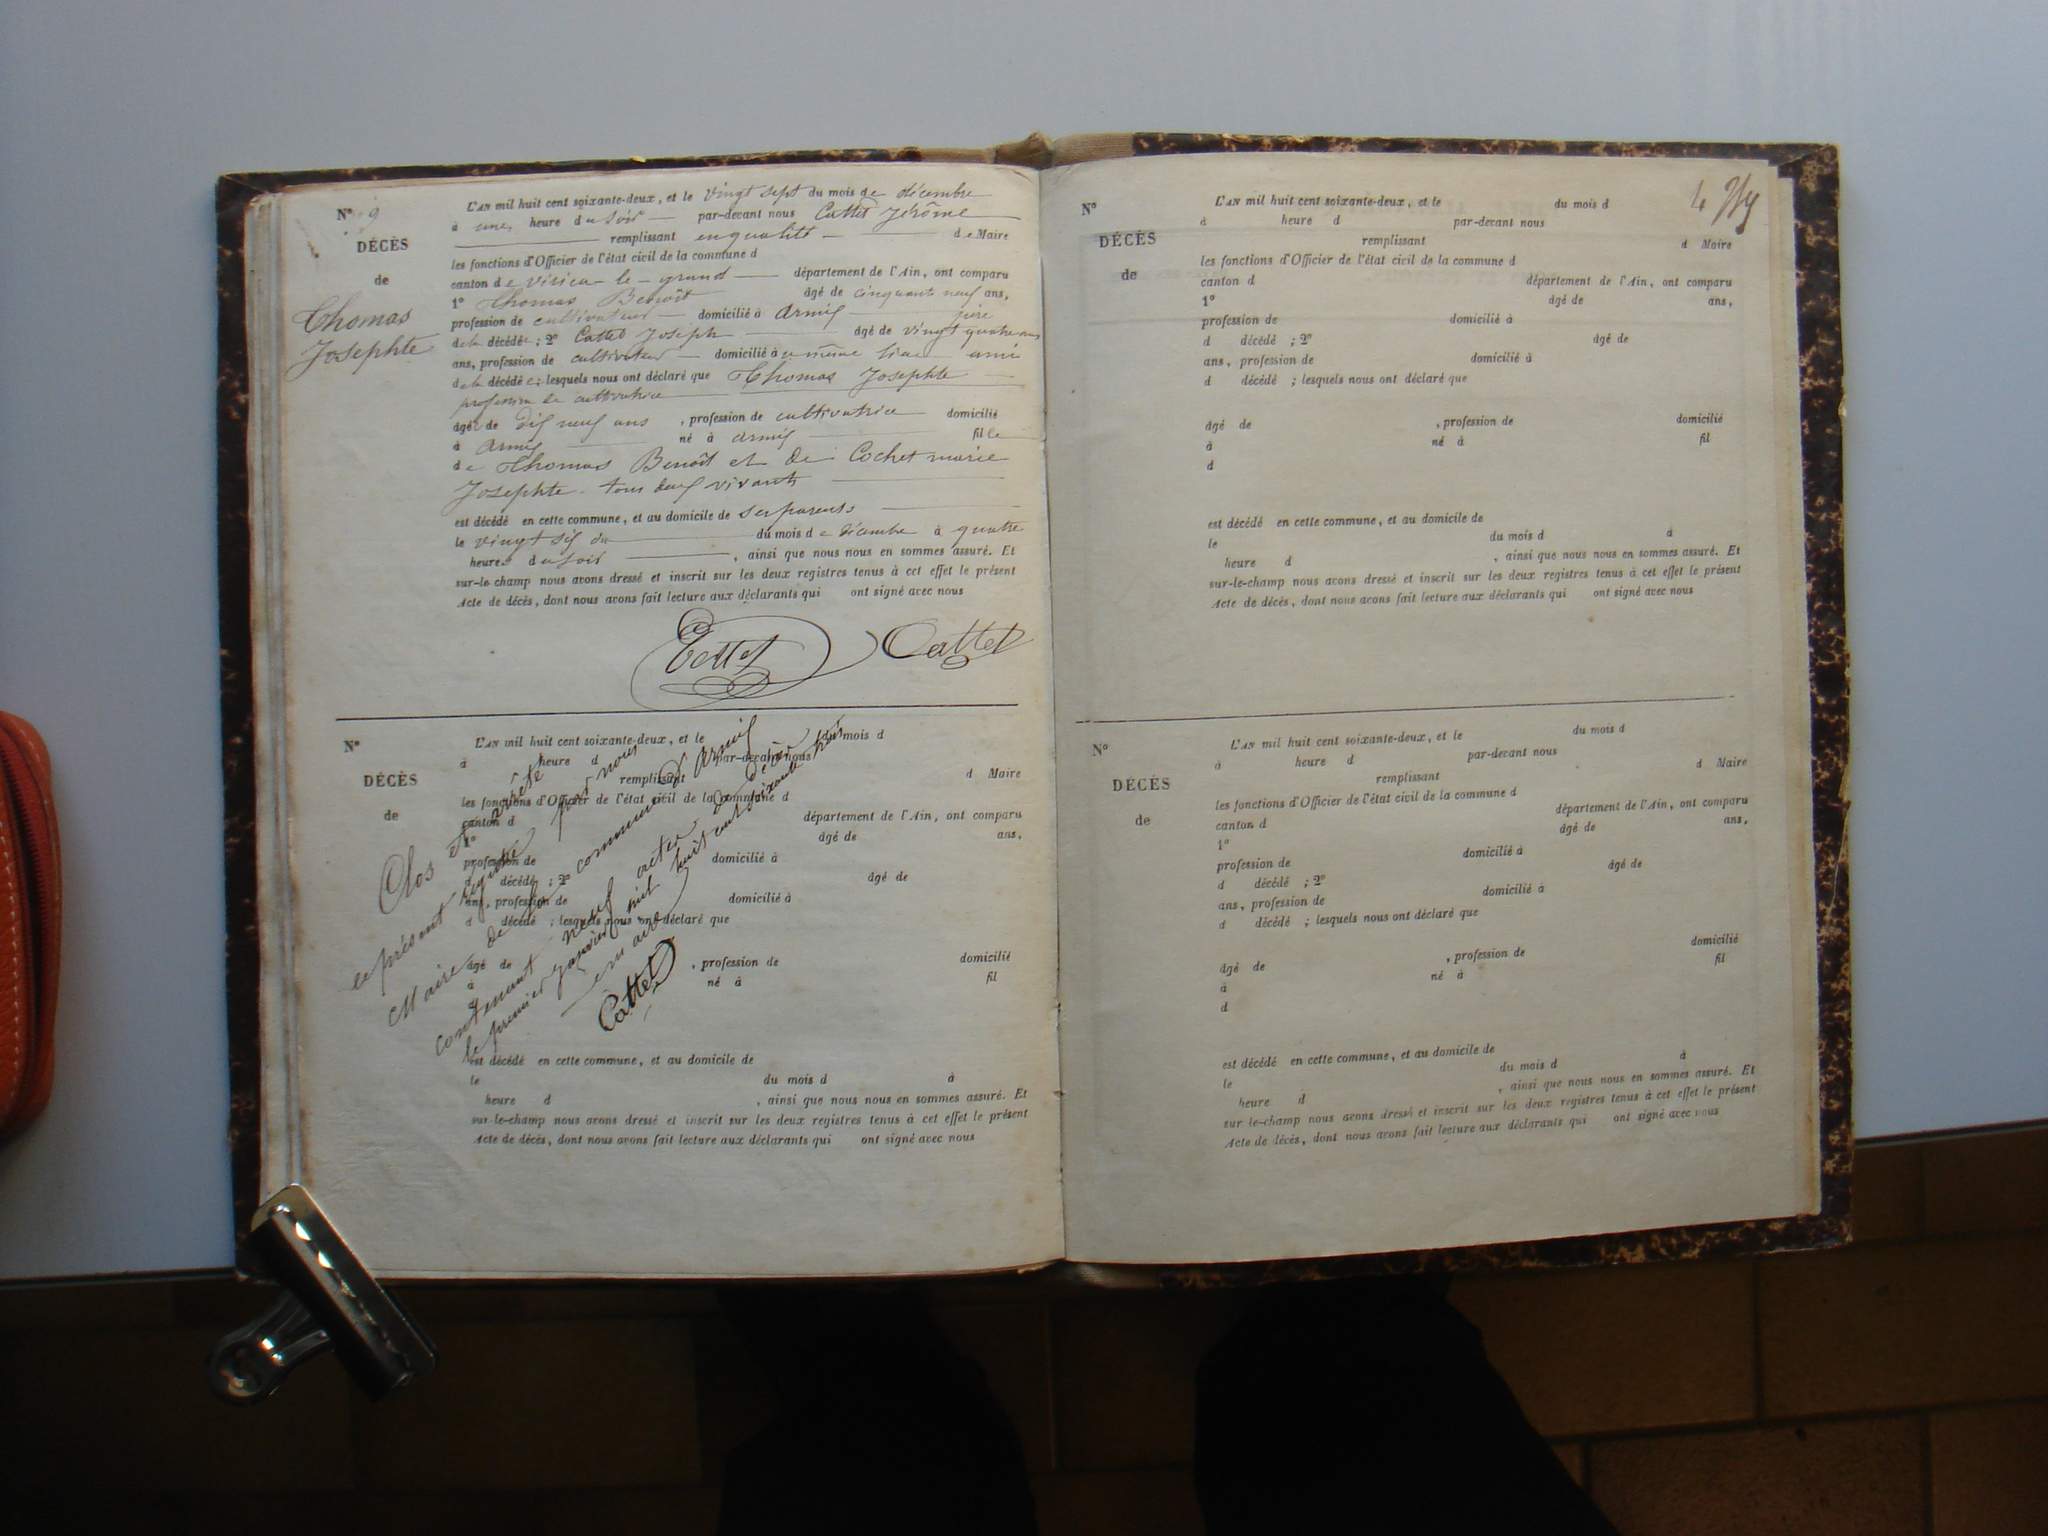 N° 9
DÉCÈS
de
Thomas
Josephte
L'AN mil huit cent soixante-deux, et le vingt sept du mois de décembre
à une heure du soir par-devant nous Cattet Jérôme
remplissant en qualité de Maire
les fonctions d'Officier de l'état civil de la commune d
canton de virieu-le-grand département de l'Ain, ont comparu
1° Thomas Benoît âgé de cinquante neuf ans,
profession de cultivateur domicilié à armix père
de la décédée ; 2° Cattet Joseph âgé de vingt quatre ans
ans, profession de cultivateur domicilié à même lieu ami
de la décédée ; lesquels nous ont déclaré que Thomas Josephte
profession de cultivatrice
âgée de dix neuf ans , profession de cultivatrice domicilié
à armix né à armix fille
de Thomas Benoît et de Cochet marie
Josephte tous deux vivants
est décédé en cette commune, et au domicile de ses parents
le vingt six du du mois de décembre à quatre
heures du soir , ainsi que nous nous en sommes assuré. Et
sur-le-champ nous avons dressé et inscrit sur les deux registres tenus à cet effet le présent
Acte de décès, dont nous avons fait lecture aux déclarants qui ont signé avec nous
Cattet Cattet
N°
DÉCÈS
de
L'AN mil huit cent soixante-deux, et le du mois d
à heure d par-devant nous
remplissant d Maire
les fonctions d'Officier de l'état civil de la commune d
canton d département de l'Ain, ont comparu
1° âgé de ans,
profession de domicilié à
d décédé ; 2° âgé de
ans, profession de domicilié à
d décédé ; lesquels nous ont déclaré que
âgé de , profession de domicilié
à né à fil
d
est décédé en cette commune, et au domicile de
le du mois d à
heure d , ainsi que nous nous en sommes assuré. Et
sur-le-champ nous avons dressé et inscrit sur les deux registres tenus à cet effet le présent
Acte de décès, dont nous avons fait lecture aux déclarants qui ont signé avec nous
Clos et arrêté
le présent registre par nous
Maire de la commune d'armix
contenant neuf actes de décès
le premier janvier mil huit cent soixante trois
maire
Cattet
4
N°
DÉCÈS
de
L'AN mil huit cent soixante-deux, et le du mois d
à heure d par-devant nous
remplissant d Maire
les fonctions d'Officier de l'état civil de la commune d
canton d département de l'Ain, ont comparu
1° âgé de ans,
profession de domicilié à
d décédé ; 2° âgé de
ans, profession de domicilié à
d décédé ; lesquels nous ont déclaré que
âgé de , profession de domicilié
à né à fil
d
est décédé en cette commune, et au domicile de
le du mois d à
heure d , ainsi que nous nous en sommes assuré. Et
sur-le-champ nous avons dressé et inscrit sur les deux registres tenus à cet effet le présent
Acte de décès, dont nous avons fait lecture aux déclarants qui ont signé avec nous
N°
DÉCÈS
de
L'AN mil huit cent soixante-deux, et le du mois d
à heure d par-devant nous
remplissant d Maire
les fonctions d'Officier de l'état civil de la commune d
canton d département de l'Ain, ont comparu
1° âgé de ans,
profession de domicilié à
d décédé ; 2° âgé de
ans, profession de domicilié à
d décédé ; lesquels nous ont déclaré que
âgé de , profession de domicilié
à né à fil
d
est décédé en cette commune, et au domicile de
le du mois d à
heure d , ainsi que nous nous en sommes assuré. Et
sur-le-champ nous avons dressé et inscrit sur les deux registres tenus à cet effet le présent
Acte de décès, dont nous avons fait lecture aux déclarants qui ont signé avec nous